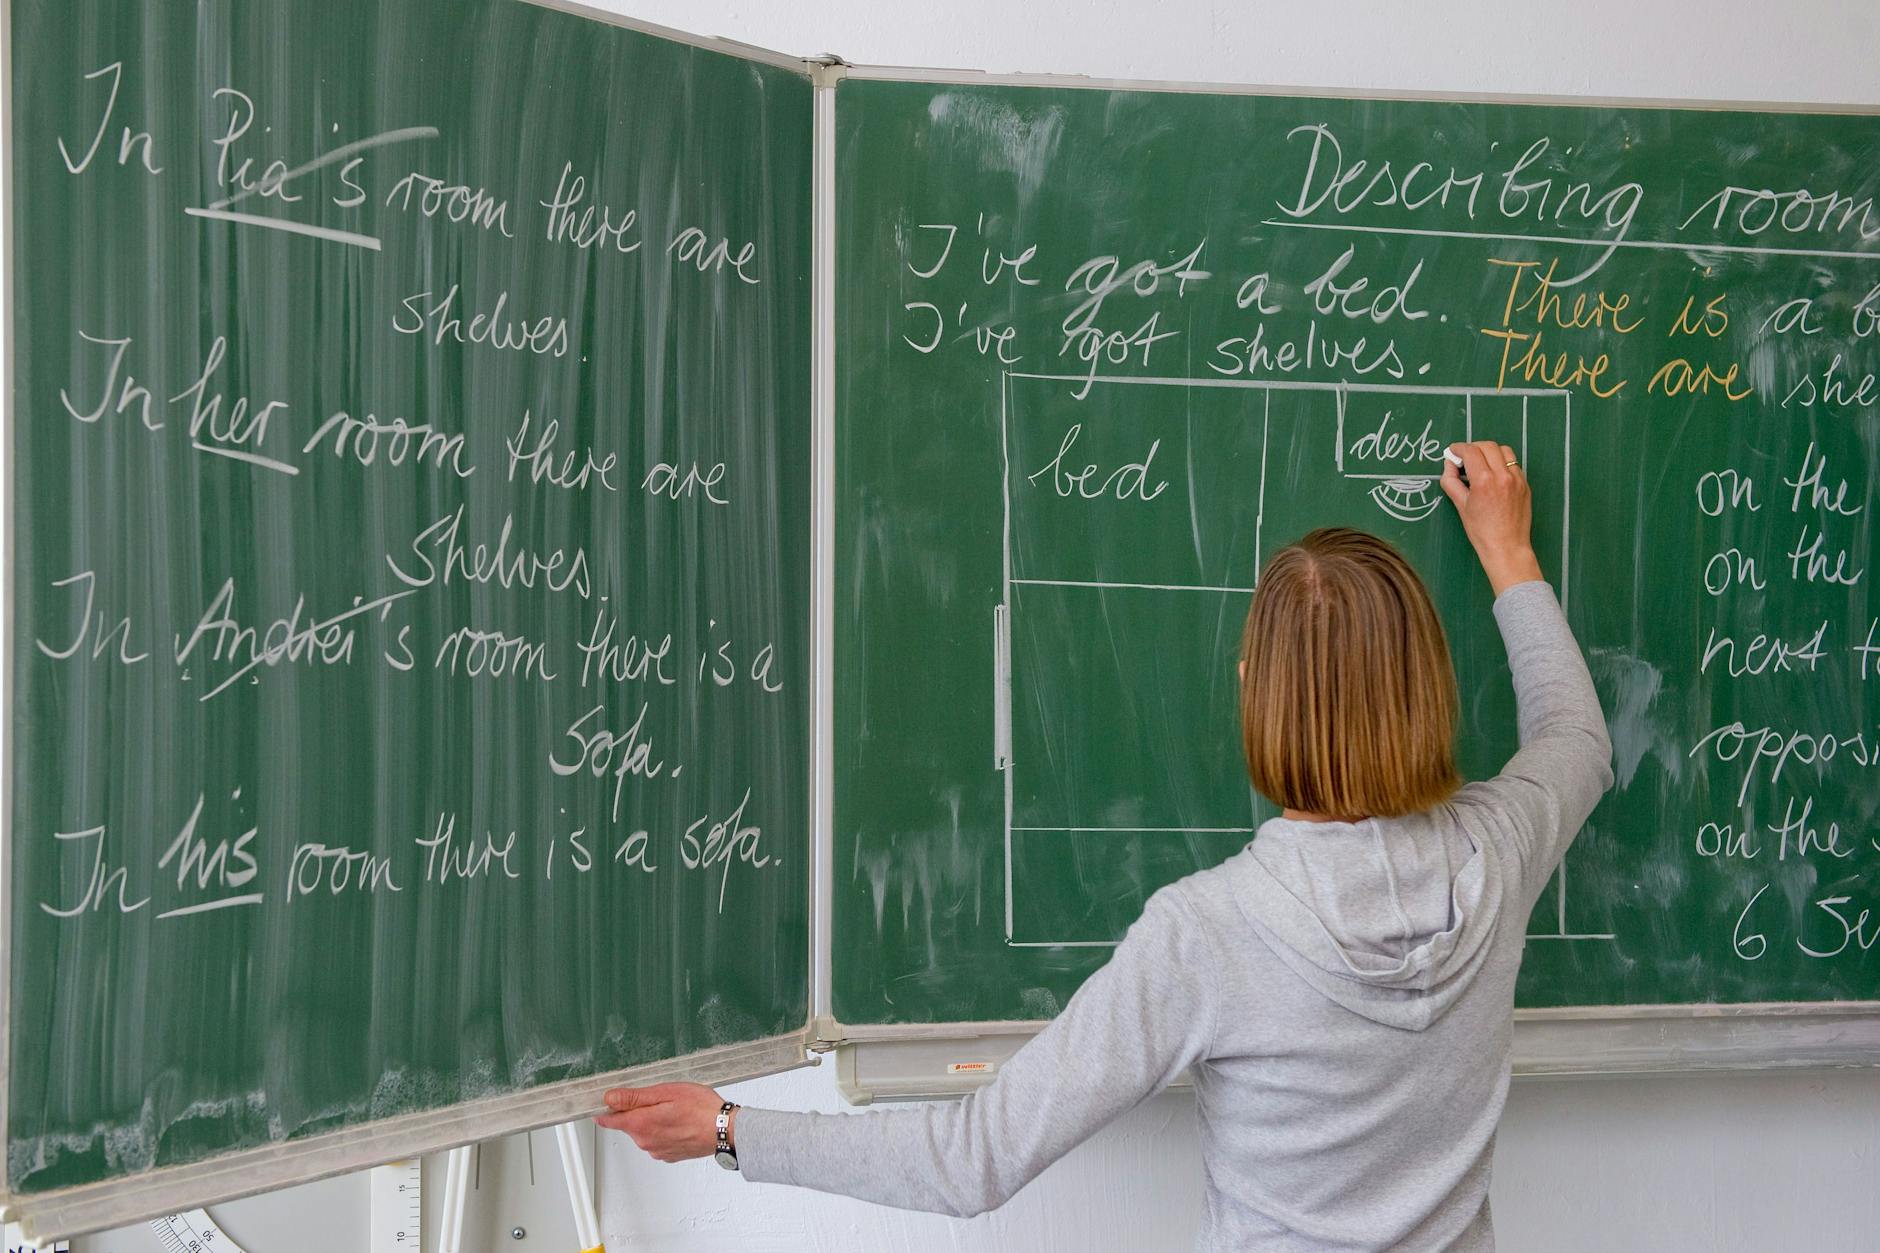 In Pia's room there are
shelves.
In her room there are
shelves.
In Andrei's room there is a
sofa.
In his room there is a sofa.
Describing room
I've got a bed. There is a b
I've got shelves. There are she
bed
desk
on the
on the
next t
opposi
on the
6 Se
wittler
15
10
50
130